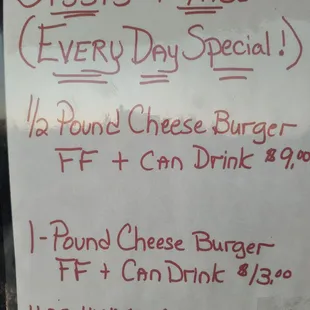 (EVERY DAY Special!)
1/2 Pound Cheese Burger
FF + CAN Drink $9.00
1-Pound Cheese Burger
FF + CAN Drink $13.00